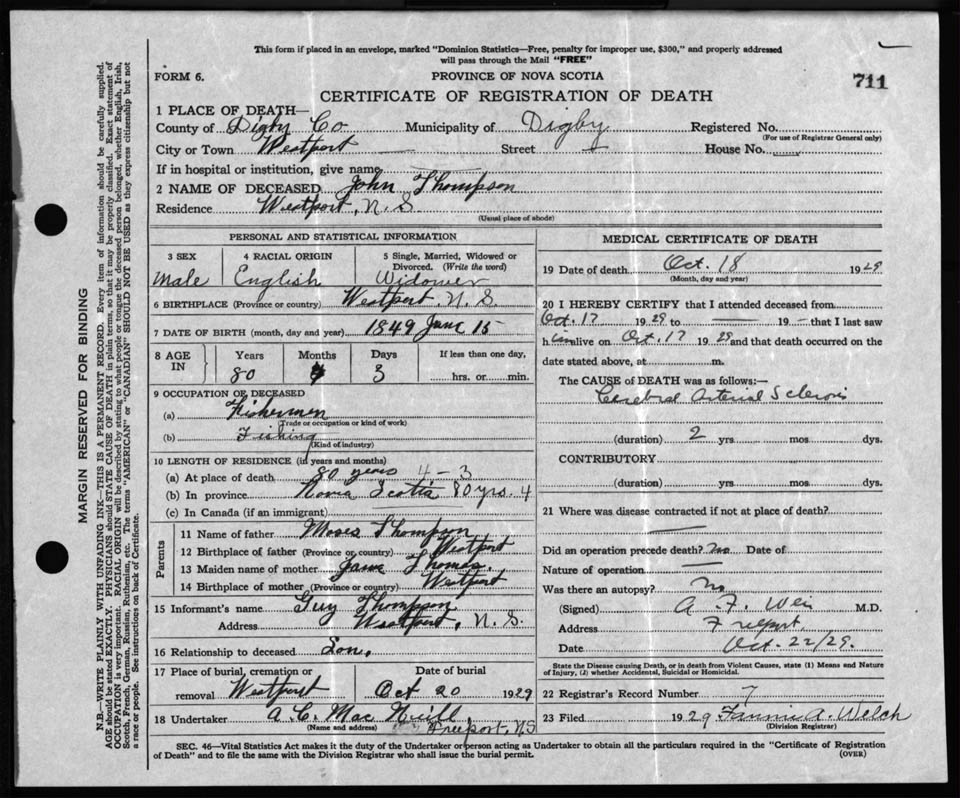 This form if placed in an envelope, marked "Dominion Statistics—Free, penalty for improper use, $300," and properly addressed
will pass through the Mail "FREE"
FORM 6.
PROVINCE OF NOVA SCOTIA
711
CERTIFICATE OF REGISTRATION OF DEATH
1 PLACE OF DEATH—
County of Digby Co Municipality of Digby Registered No.
(For use of Registrar General only)
City or Town Westport Street House No.
If in hospital or institution, give name
2 NAME OF DECEASED John Thompson
Residence Westport, N. S
(Usual place of abode)
PERSONAL AND STATISTICAL INFORMATION
3 SEX 4 RACIAL ORIGIN 5 Single, Married, Widowed or
Divorced. (Write the word)
Male English Widower
6 BIRTHPLACE (Province or country) Westport N. S.
7 DATE OF BIRTH (month, day and year) 1849 June 15
8 AGE IN Years Months Days If less than one day,
80 4 3 hrs. or min.
9 OCCUPATION OF DECEASED
(a) Fisherman
(Trade or occupation or kind of work)
(b) Fishing
(Kind of industry)
10 LENGTH OF RESIDENCE (in years and months)
(a) At place of death 80 years 4 - 3
(b) In province Nova Scotia 80 yrs. 4
(c) In Canada (if an immigrant)
Parents
11 Name of father Moses Thompson
12 Birthplace of father (Province or country) Westport
13 Maiden name of mother Jane Thomas.
14 Birthplace of mother (Province or country) Westport
15 Informant's name Guy Thompson
Address Westport, N. S.
16 Relationship to deceased Son.
17 Place of burial, cremation or Date of burial
removal Westport Oct 20 1929
18 Undertaker A. C. Mac Neill
(Name and address) Freeport, NS
MEDICAL CERTIFICATE OF DEATH
19 Date of death Oct. 18 1929
(Month, day and year)
20 I HEREBY CERTIFY that I attended deceased from
Oct. 17 1929 to — 19 — that I last saw
h im alive on Oct. 17 1929 and that death occurred on the
date stated above, at m.
The CAUSE of DEATH was as follows:—
Cerebral Arterial Sclerosis
(duration) 2 yrs. mos. dys.
CONTRIBUTORY
(duration) yrs. mos. dys.
21 Where was disease contracted if not at place of death?
Did an operation precede death? no Date of
Nature of operation —
Was there an autopsy? no
(Signed) A. F. M.D.
Address Freeport
Date Oct. 22/29.
State the Disease causing Death, or in death from Violent Causes, state (1) Means and Nature
of Injury, (2) whether Accidental, Suicidal or Homicidal.
22 Registrar's Record Number 7
23 Filed 1929 Fannie A. Welch
(Division Registrar)
SEC. 46—Vital Statistics Act makes it the duty of the Undertaker or person acting as Undertaker to obtain all the particulars required in the "Certificate of Registration
of Death" and to file the same with the Division Registrar who shall issue the burial permit.
(OVER)
MARGIN RESERVED FOR BINDING
N.B.—WRITE PLAINLY WITH UNFADING INK—THIS IS A PERMANENT RECORD. Every item of information should be carefully supplied.
AGE should be stated EXACTLY. PHYSICIANS should STATE CAUSE OF DEATH in plain terms, so that it may be properly classified. Exact statement of
OCCUPATION is very important. RACIAL ORIGIN will be described by stating to what people or tongue the deceased person belonged, whether English, Irish,
Scotch, French, German, Russian, Ruthenian, etc. The terms "AMERICAN" or "CANADIAN" SHOULD NOT BE USED as they express citizenship but not
a race or people. See instructions on back of Certificate.